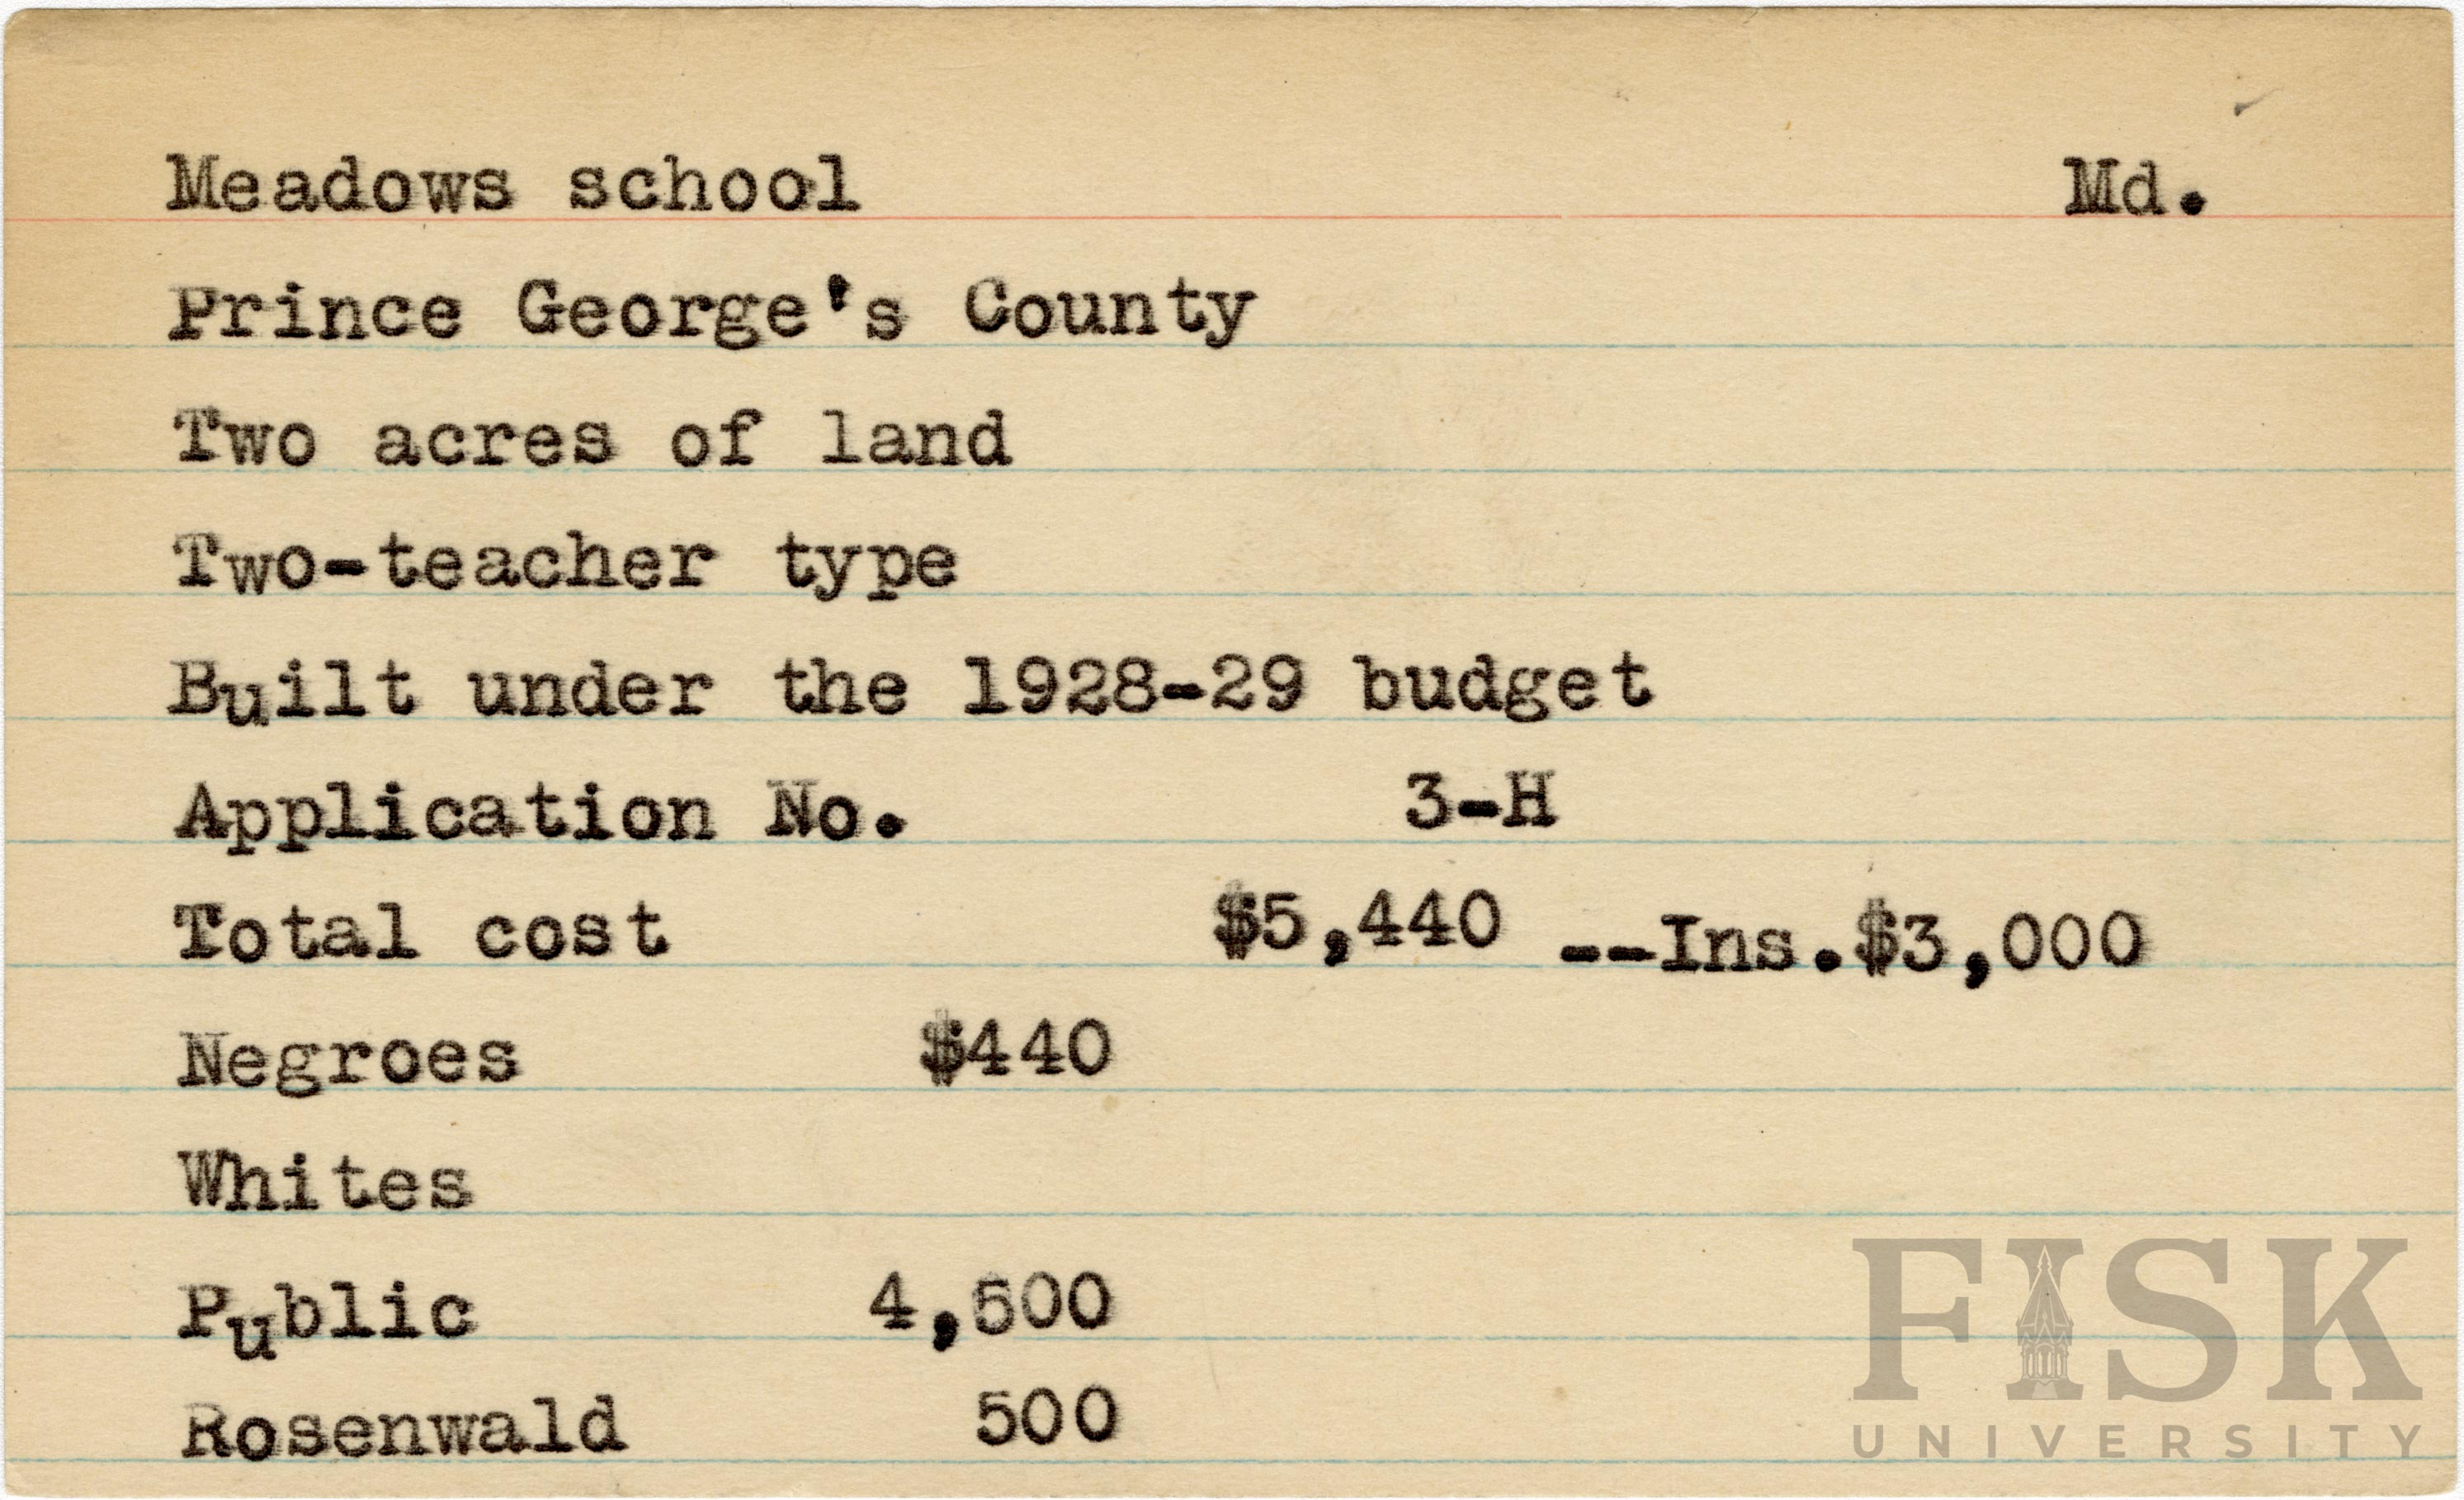 Meadows school Md.
Prince George's County
Two acres of land
Two-teacher type
Built under the 1928-29 budget
Application No. 3-H
Total cost $5,440 --Ins.$3,000
Negroes $440
Whites
Public 4,500
Rosenwald 500
FISK
UNIVERSITY